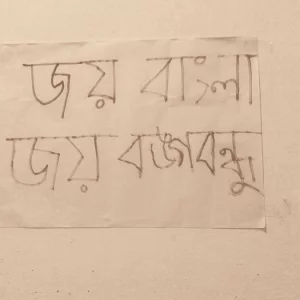 জয় বাংলা
জয় বঙ্গবন্ধু